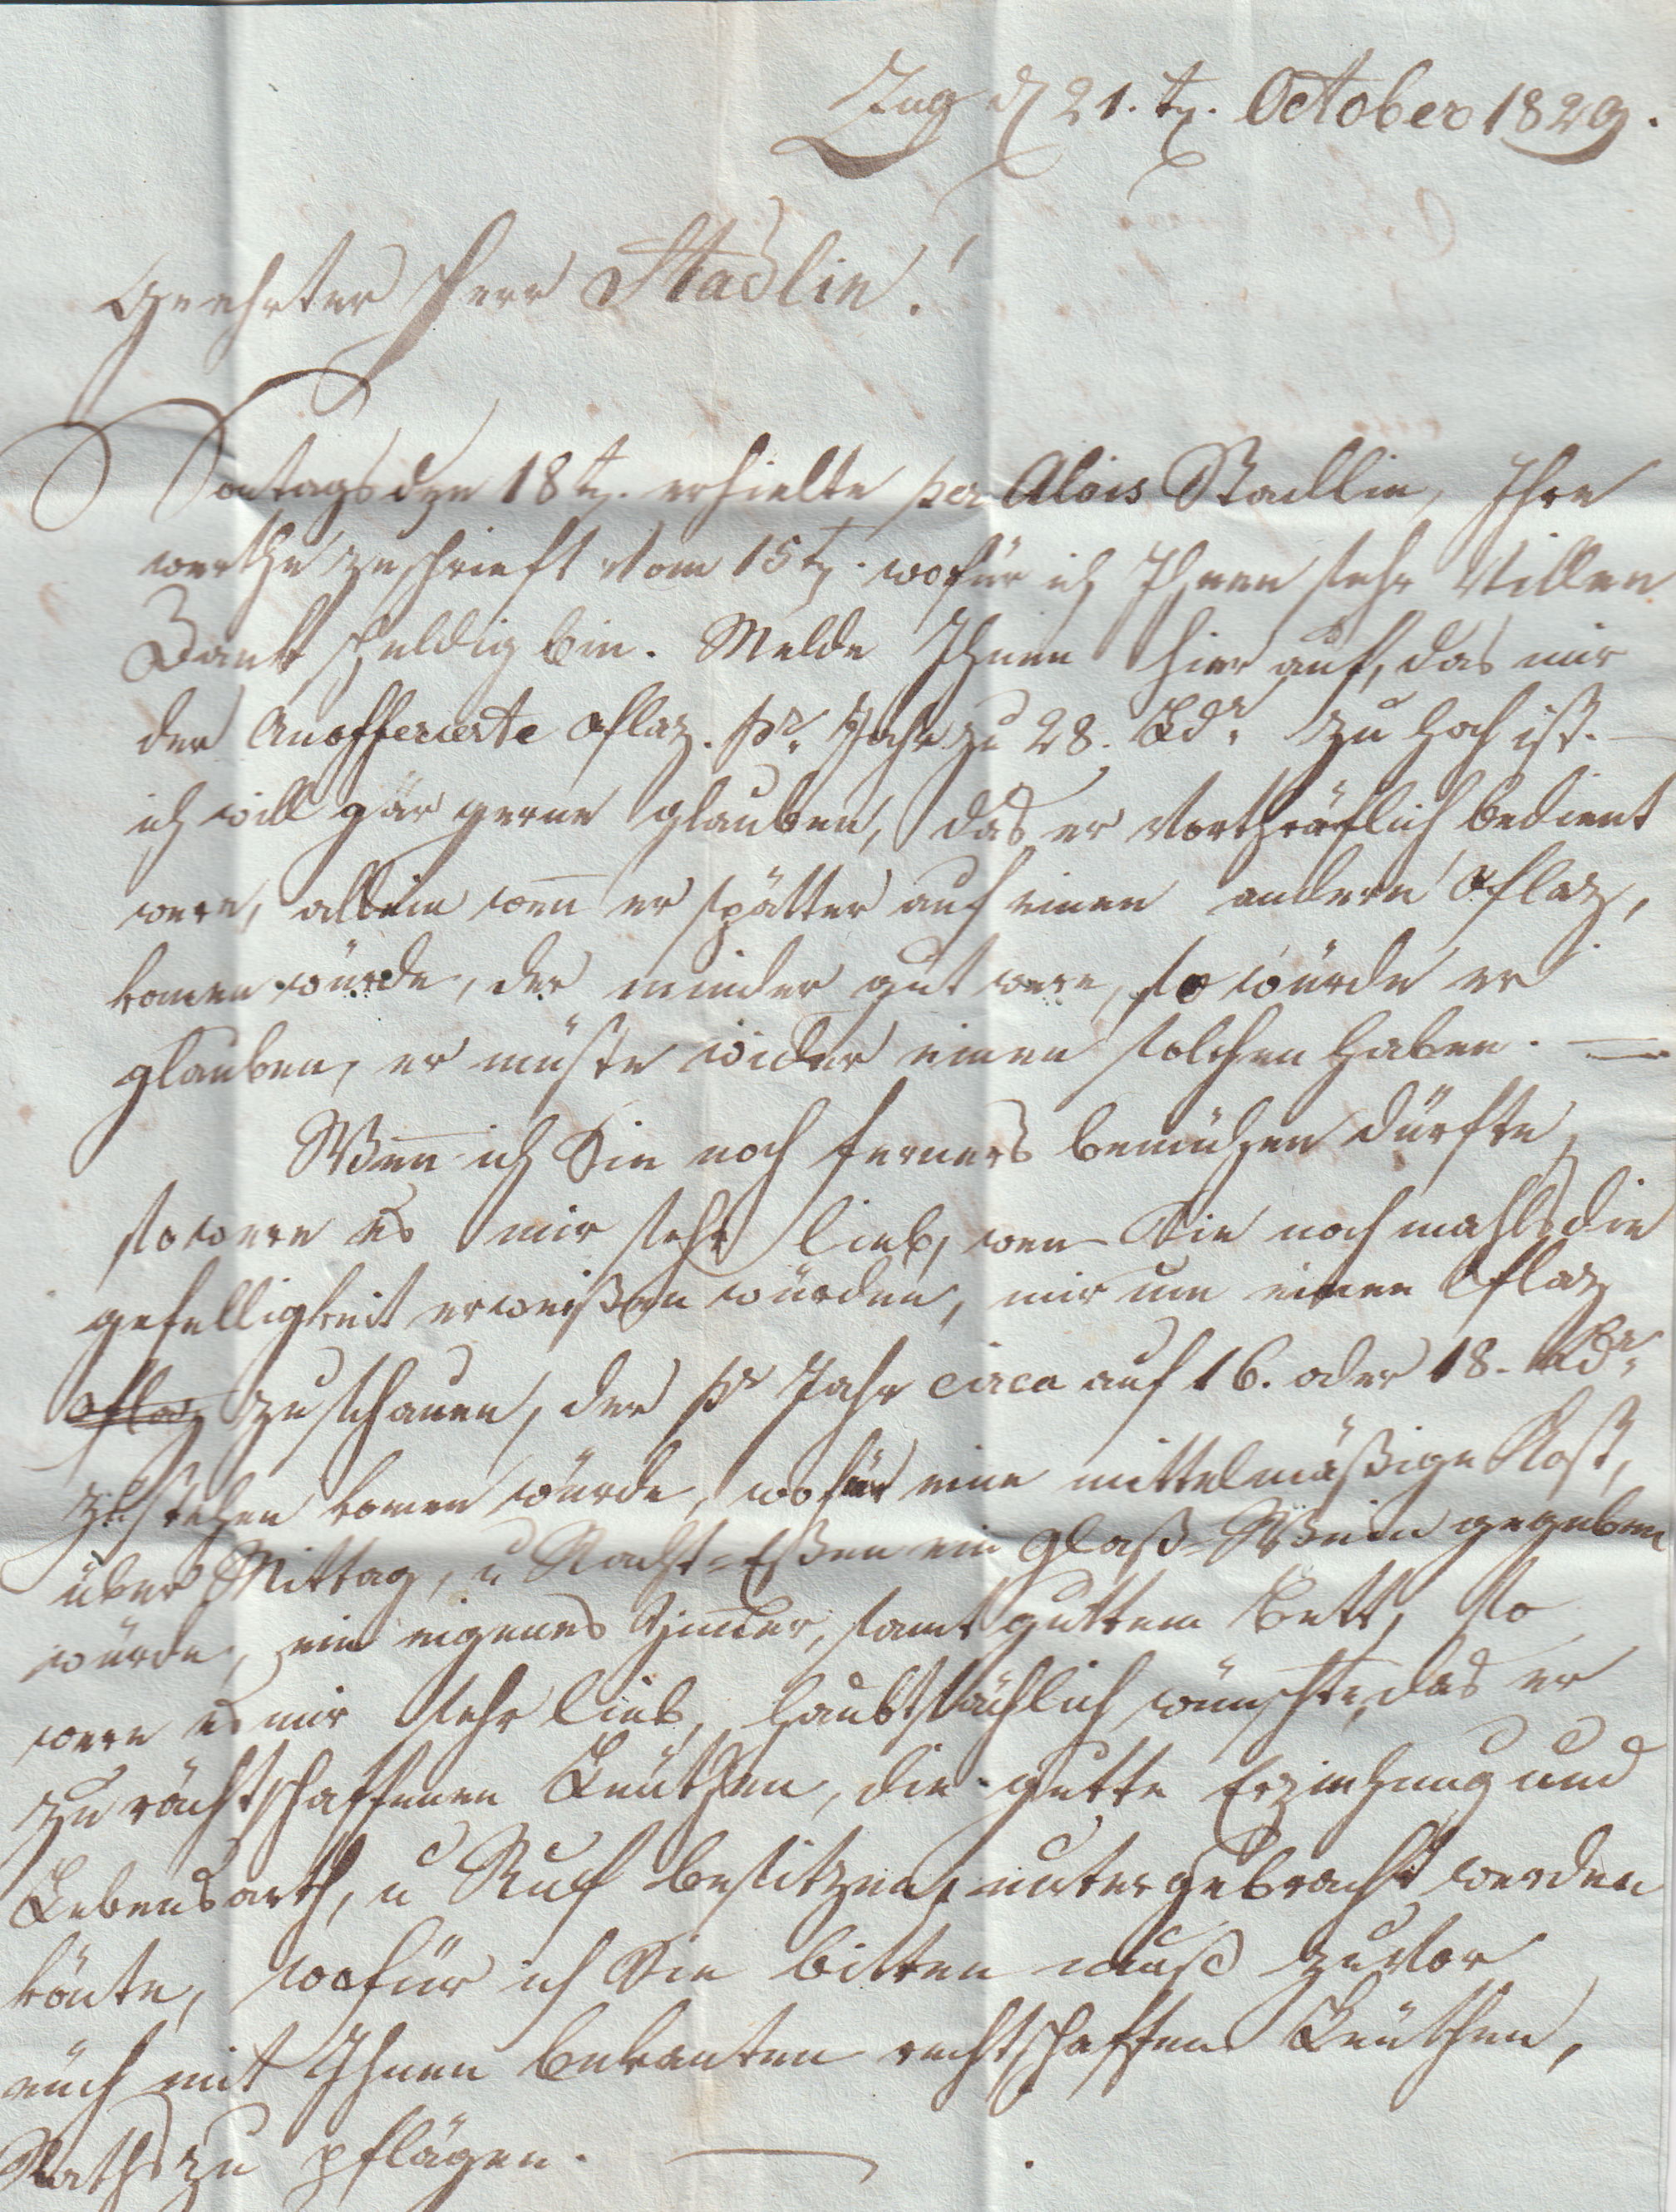 Zug d 21.t. October 1829.
Geehrter Herr Stadlin!
Sontags den 18t. erhielte per Alois Stadlin, Ihre
werthe Zuschrieft vom 15t. wofür ich Ihnen sehr villen
Dank schuldig bin. Melde Ihnen hier auf, das mir
der Anofferierte Plaz. pr. Jahr zu 28. Ldr. zu hoch ist. —
ich will gar gerne glauben, das er vorthräflich bedient
were, allein wen̅ er spätter auf einen andern Plaz,
komen würde, der minder gut were, so würde er
glauben, er müste wider einen solchen haben. —
Wen̅ ich Sie noch ferners bemühen dürfte,
so were es mir sehr lieb, wen Sie noch mahls die
gefelligkeit erweißen würden, mir um einen Plaz
Plaz zu schauen, der pr Jahr circa auf 16. oder 18. Ldr.
zu stehen komen würde, wofür eine mittelmäßige Kost,
über Mittag, u Nacht=Eßen ein Glaß=Wein gegeben
würde, ein eigenes Zimer, samt guttem Bett, so
were es mir sehr lieb, haubtsächlich wünschte, das er
zu rächtschaffenen Leüthen, die gutte Erziehung und
Lebensarth, u Ruf besitzen, untergebracht werden
könte, wofür ich Sie bitten muß zuvor
auch mit Ihnen bekanten rechtschaffene Leüthen,
Raths zu pflägen. —